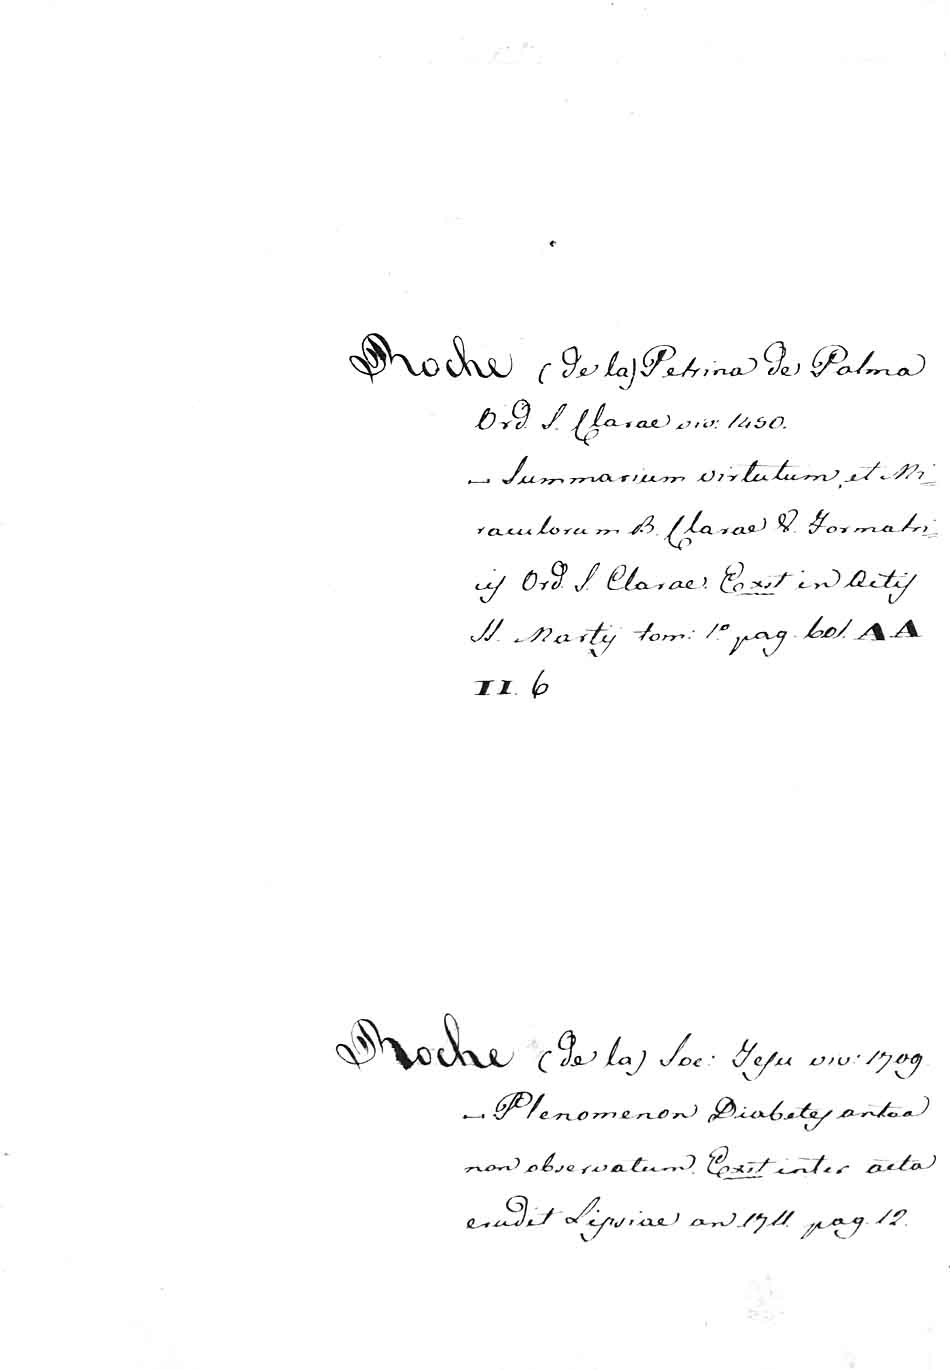 Roche (de la) Petrina de Palma
Ord. S. Clarae viv: 1450.
– Summarium virtutum, et Mi=
raculorum B. Clarae V. Formatri=
cis Ord. S. Clarae. Exst in Actis
SS. Martij tom: 1º pag. 601. AA
II. 6
Roche (de la) Soc: Jesu viv: 1709
– Phenomenon Diabetes antea
non observatum. Exst inter acta
erudit Lipsiae an 1711. pag. 12.